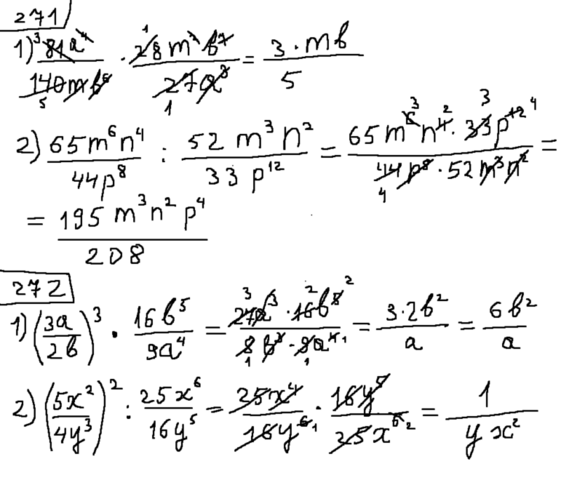 271
1) 81a⁴/140mb⁶ · 28m²b⁷/27a⁸ = 3·mb/5
2) 65m⁶n⁴/44p⁸ : 52m³n²/33p¹² = 65m⁶n⁴·33p¹²/44p⁸·52m³n² =
= 195m³n²p⁴/208
272
1) (3a/2b)³ · 16b⁵/9a⁴ = 27a³·16b⁵/8b³·9a⁴ = 3·2b²/a = 6b²/a
2) (5x²/4y³)² : 25x⁶/16y⁵ = 25x⁴/16y⁶ · 16y⁵/25x⁶ = 1/yx²